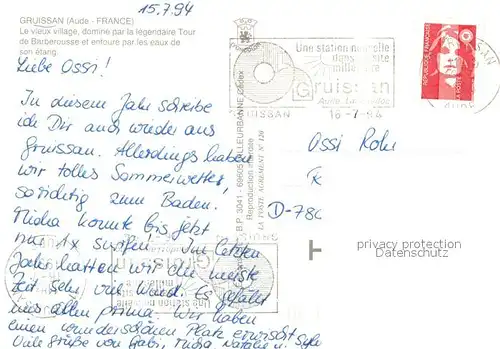 15.7.94
GRUISSAN (Aude - FRANCE)
Le vieux village, dominé par la légendaire Tour
de Barberousse et entouré par les eaux de
son étang.
Liebe Ossi!
In diesem Jahr schreibe
ich Dir auch wieder aus
Gruissan. Allerdings haben
wir tolles Sommerwetter,
so richtig zum Baden.
Micha konnte bis jetzt
nur 1x surfen! Im letzten
Jahr hatten wir die meiste
Zeit sehr viel Wind. Es gefällt
uns allen prima. Wir haben
einen wunderschönen Platz erwischt
Viele Grüße von Gabi, Micha, Natalie u.
Une station nouvelle
dans un site
millénaire
Gruissan
Aude
GRUISSAN
16-7-94
B.P. 3041 - 69605 VILLEURBANNE Cédex
Reproduction interdite
LA POSTE AGREMENT N° 120
REPUBLIQUE FRANÇAISE
LA POSTE
Ossi
D-780
privacy protection
Datenschutz
Gruissan
Une station nouvelle